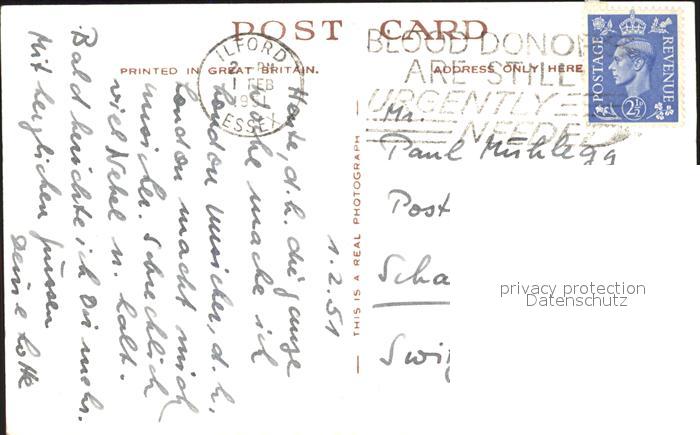 POST CARD
PRINTED IN GREAT BRITAIN.
ADDRESS ONLY HERE
ILFORD
2 PM
1 FEB
1951
ESSEX
BLOOD DONO
ARE STILL
URGENTLY
NEEDED
POSTAGE
REVENUE
2½
THIS IS A REAL PHOTOGRAPH
1.2.51
Heute, d.h. die ganze
Woche mache ich
London unsicher, d.h.
London macht mich
unsicher. Schrecklich
viel Nebel u. kalt.
Bald berichte ich Dir mehr.
Mit herzlichen Grüssen
Deine Lotte
Mr.
Paul Mühlegg
Post
Scha
Swi
privacy protection
Datenschutz